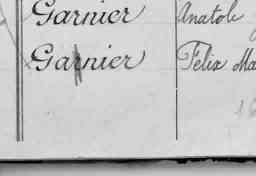 Garnier Anatole
Garnier Félix Ma